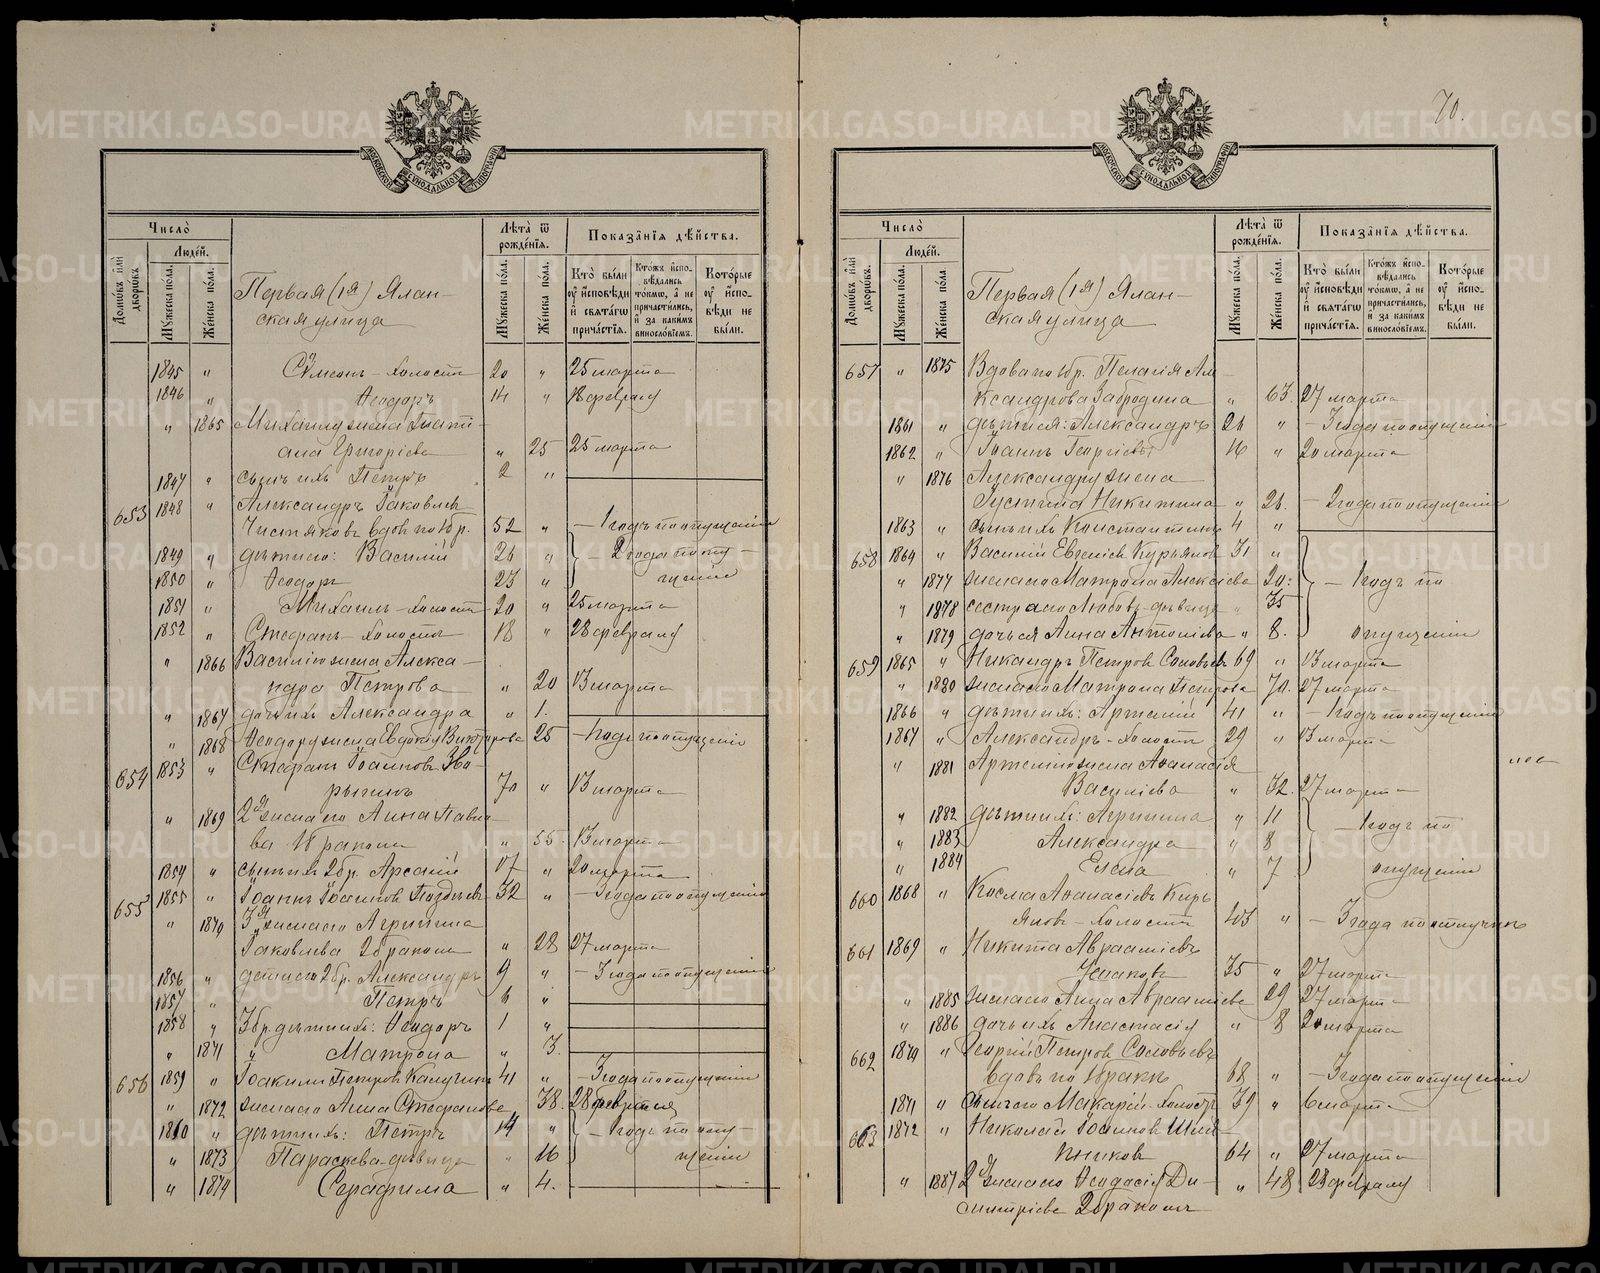 70.
МОСКОВСКОЙ СѴНОДАЛЬНОЙ ТИПОГРАФІИ
Число̀
Людéй.
Домѡ́въ и҆лѝ дворѡ́въ.
Мꙋжеска по́ла.
Же́нска по́ла.
Первая (1я) Ялан-
ская улица
Лѣ́та ѿ рожде́нїѧ.
Мꙋжеска по́ла.
Же́нска по́ла.
Показа̑нїѧ дѣ́йства.
Кто̀ бы́ли ᲂу҆ и҆сповѣ́ди и҆ свѧта́гѡ прича́стїѧ.
Кто́жъ и҆спо-вѣ́дались то́кмѡ, а҆ не причасти́лись, и҆ за каки́мъ виносло́вїемъ.
Кото́рые ᲂу҆ и҆спо-вѣ́ди не бы́ли.
1845 " Сѵмеонъ - холостъ 20 " 25 марта
1846 " Ѳеодоръ 14 " 18 февраля
" 1865 Михаилу жена Глати-
ана Григоріева " 25 25 марта
1847 " сынъ ихъ Петръ 2 "
653 1848 " Александръ Іаковлевъ
Чистяковъ вдовъ по 1 бр. 52 " - 1 годъ по опущенію
1849 " дѣти его: Василій 26 " 2 года по опу-
1850 " Ѳеодоръ 23 " щенію
1851 " Михаилъ - холостъ 20 " 25 марта
1852 " Стефанъ - холостъ 18 " 28 февраля
" 1866 Василію жена Алекса-
ндра Петрова " 20 13 марта
" 1867 дочь ихъ Александра " 1.
" 1868 Ѳеодору жена Евдокія Викторова 25 - 1 годъ по опущенію
654 1853 " Стефанъ Іоанновъ Зво-
рыгинъ 70 " 13 марта
" 1869 2я жена его Анна Павло-
ва 1 бракомъ " 55. 13 марта
1854 " сынъ ихъ 2 бр. Арсеній 17 " 20 марта
655 1855 " Іоаннъ Іоанновъ 32 " - 3 года по опущенію
" 1870 3я жена его Агрипина
Іаковлева 2 бракомъ " 28 27 марта
1856 " дѣти его 2 бр. Александръ 9 " - 3 года по опущенію
1857 " Петръ 6 "
1858 " 3 бр. дѣти ихъ: Ѳеодоръ 1 "
" 1871 " Матрона " 3.
656 1859 " Іоакимъ Петровъ Калугинъ 41 " - 3 года по опущенію
" 1872 жена его Анна Стефанова 38. 28 февраля
1860 " дѣти ихъ: Петръ 14 " - 1 годъ по опу-
" 1873 Параскева - дѣвица " 16 щенію
" 1874 Серафима " 4.
МОСКОВСКОЙ СѴНОДАЛЬНОЙ ТИПОГРАФІИ
Число̀
Людéй.
Домѡ́въ и҆лѝ дворѡ́въ.
Мꙋжеска по́ла.
Же́нска по́ла.
Первая (1я) Ялан-
ская улица
Лѣ́та ѿ рожде́нїѧ.
Мꙋжеска по́ла.
Же́нска по́ла.
Показа̑нїѧ дѣ́йства.
Кто̀ бы́ли ᲂу҆ и҆сповѣ́ди и҆ свѧта́гѡ прича́стїѧ.
Кто́жъ и҆спо-вѣ́дались то́кмѡ, а҆ не причасти́лись, и҆ за каки́мъ виносло́вїемъ.
Кото́рые ᲂу҆ и҆спо-вѣ́ди не бы́ли.
657 " 1875 Вдова по 1 бр. Пелагія Але-
ксандрова Забродина " 63. 27 марта
1861 " дѣти ея: Александръ 26 " - 3 года по опущенію
1862 " Іоаннъ Георгіевы 16 " 20 марта
" 1876 Александру жена
Іустина Никитина " 26. - 2 года по опущенію
1863 " сынъ ихъ Константинъ 4 "
658 1864 " Василій Евгеніевъ Курьяновъ 31 "
" 1877 жена его Матрона Алексіева 20: - 1 годъ по
" 1878 сестра его Любовь - дѣвица " 35
" 1879 дочь ея Анна Антоніева " 8. опущенію
659 1865 " Никандръ Петровъ Соловьевъ 69 " 13 марта
" 1880 жена его Матрона Петрова 70. 27 марта
1866 " дѣти ихъ: Артемій 41 " - 1 годъ по опущенію
1867 " Александръ - холостъ 29 " 13 марта
" 1881 Артемію жена Аѳанасія
Василіева " 32. 27 марта
" 1882 дѣти ихъ: Агрипина " 11
" 1883 Александра " 8 - 1 годъ по
" 1884 Елена " 7 опущенію
660 1868 " Косма Аѳанасіевъ Кирь-
яновъ - холостъ 43 " - 3 года по отлучкѣ
661 1869 " Никита Авраамієвъ
Ушаковъ 35 " 27 марта
" 1885 жена его Анна Авраамiева 29 27 марта
" 1886 дочь ихъ Анастасія " 8 20 марта
662 1870 " Георгій Петровъ Соловьевъ
вдовъ по 1 бракѣ 68 " - 3 года по опущенію
1871 " сынъ его Макарій - холостъ 39 " 6 марта
663 1872 " Николай Іоанновъ Шля-
пниковъ 64 " 27 марта
" 1887 2я жена его Ѳеодосія Ди-
митріева 2 бракомъ " 48 28 февраля
METRIKI.GASO-URAL.RU